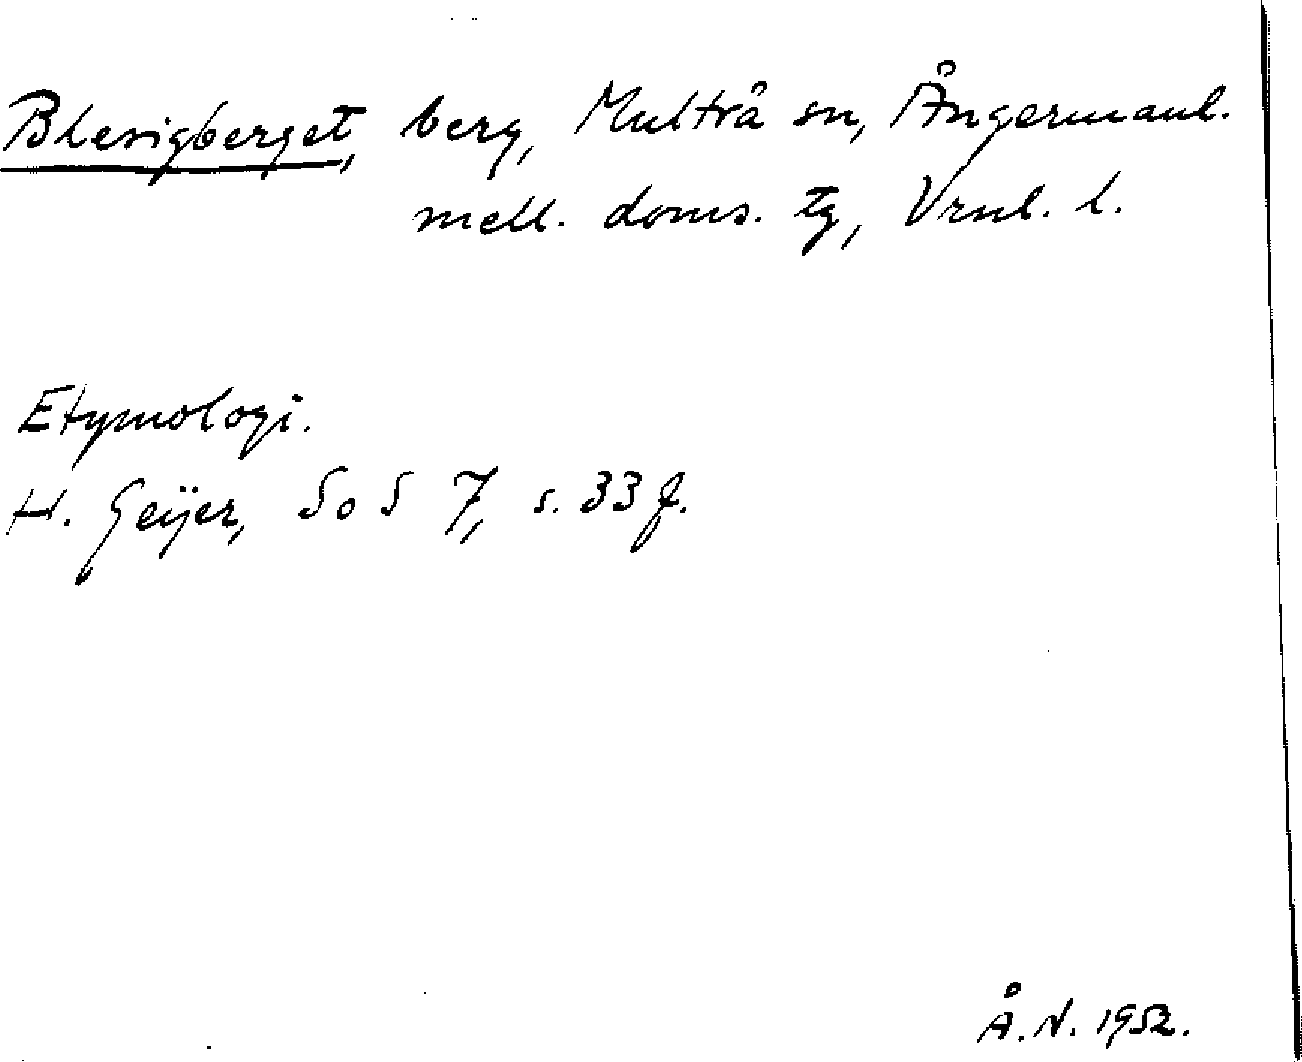 Blesigberget, berg, Multrå sn, Ångermanl.
mell. doms. tg, Vrnl. l.
Etymologi.
H. Geijer, SoS 7, s. 33 f.
Å. N. 1952.